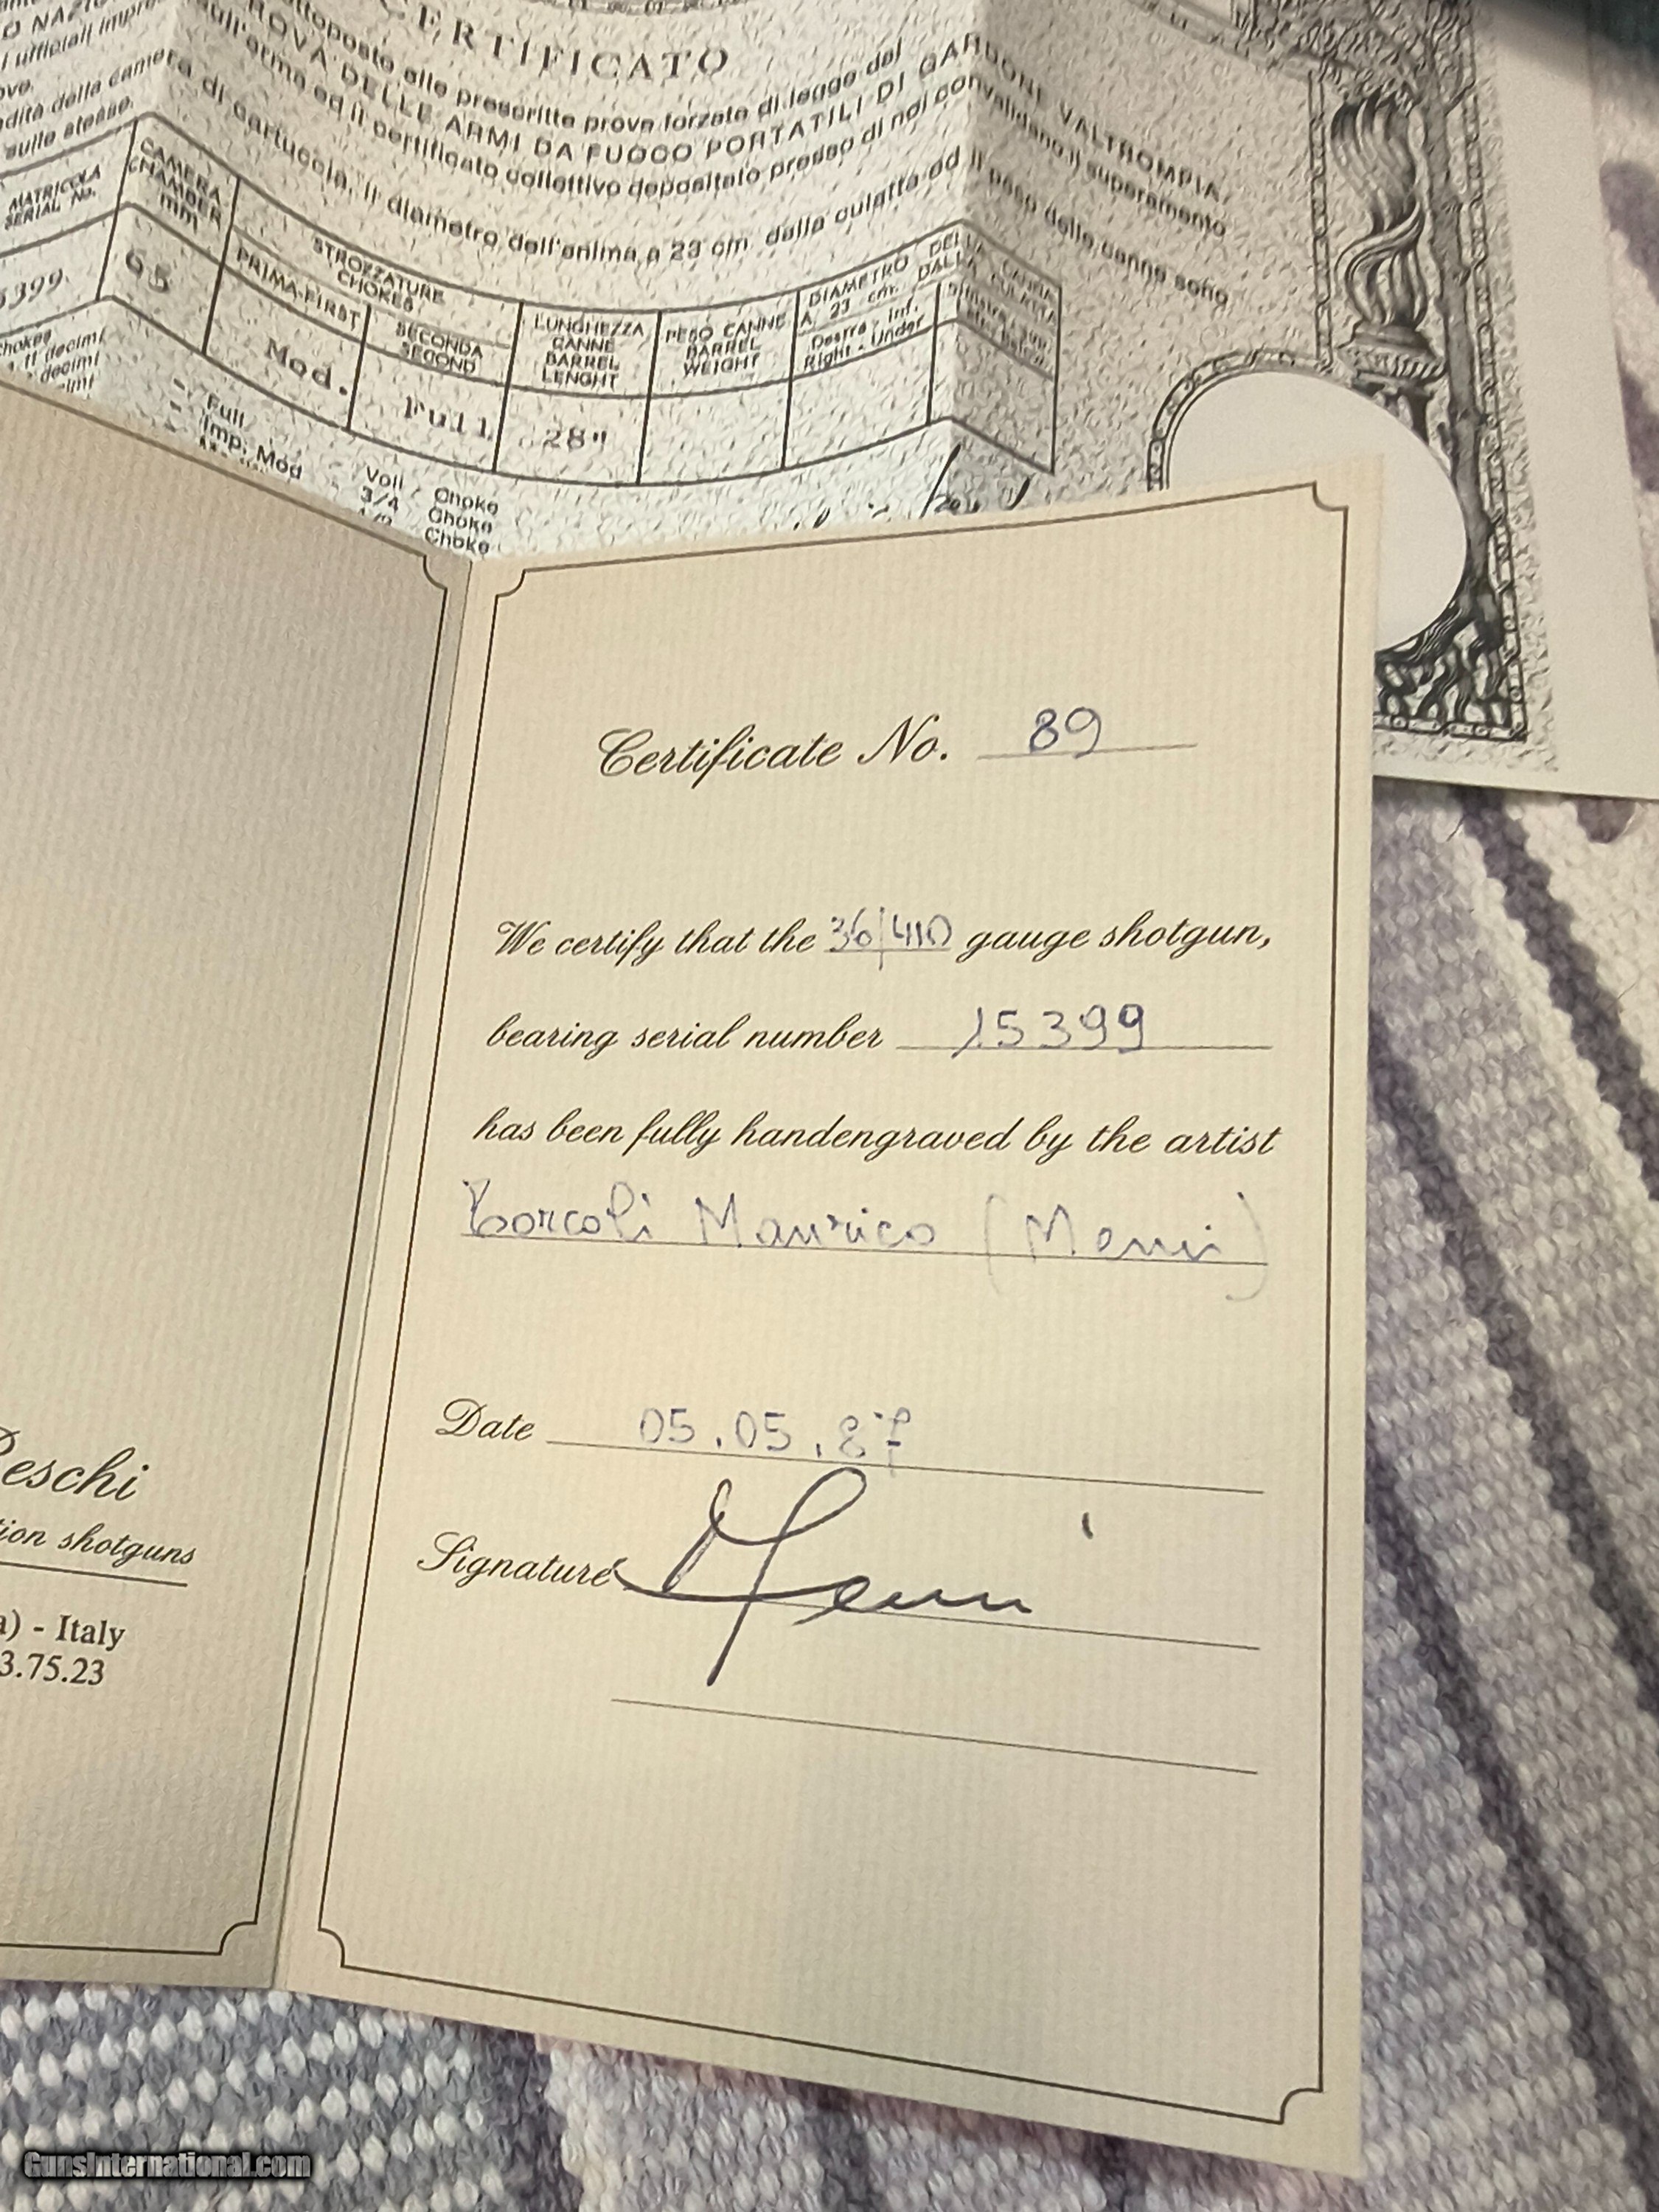 CERTIFICATO
alle prescritte prove forzate di legge del
PROVA DELLE ARMI DA FUOCO PORTATILI DI GARDONE VALTROMPIA,
sull'arma ed il certificato collettivo depositato presso di noi convalidano il superamento
di cartuccia, il diametro dell'anima a 23 cm. dalla culatta ed il peso delle canne sono
sulle stesse.
MATRICOLA
SERIAL No.
CAMERA
CHAMBER
mm
STROZZATURE
CHOKES
PRIMA-FIRST
SECONDA
SECOND
LUNGHEZZA
CANNE
BARREL
LENGHT
PESO CANNE
BARREL
WEIGHT
DIAMETRO DELLA CANNA
A 23 cm. DALLA CULATTA
Destra - Inf.
Right - Under
5399.
65
Mod.
Full
28"
Full
Imp. Mod
Choke
3/4 Choke
Choke
Certificate No. 89
We certify that the 36/410 gauge shotgun,
bearing serial number 15399
has been fully handengraved by the artist
Torcoli Maurico (Memi)
Date 05.05.87
Signature Memi
Peschi
tion shotguns
a) - Italy
3.75.23
GunsInternational.com